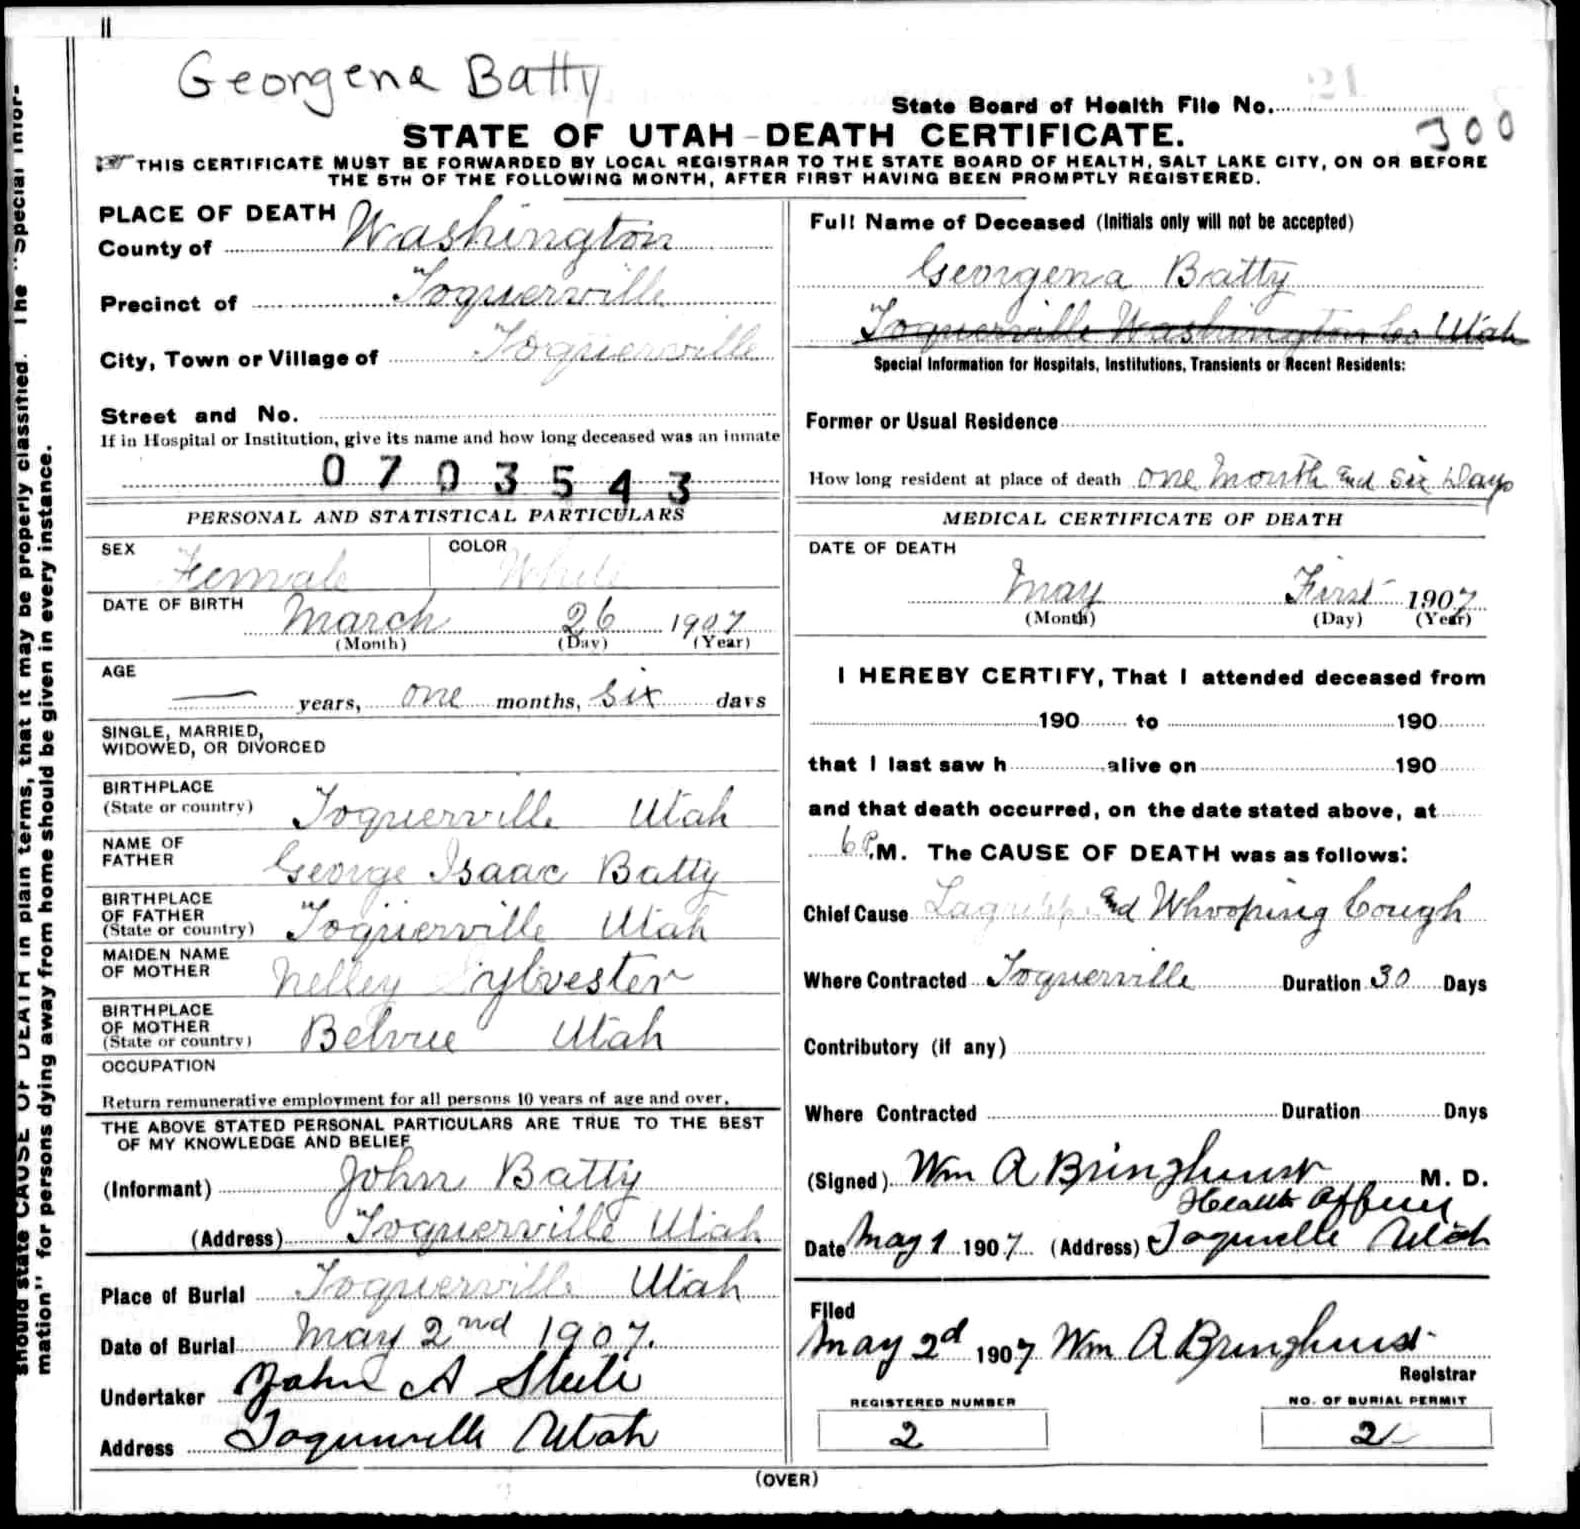 Georgena Batty
State Board of Health File No.
300
STATE OF UTAH - DEATH CERTIFICATE.
THIS CERTIFICATE MUST BE FORWARDED BY LOCAL REGISTRAR TO THE STATE BOARD OF HEALTH, SALT LAKE CITY, ON OR BEFORE
THE 5TH OF THE FOLLOWING MONTH, AFTER FIRST HAVING BEEN PROMPTLY REGISTERED.
should state CAUSE OF DEATH in plain terms, that it may be properly classified. The "Special Infor-
mation" for persons dying away from home should be given in every instance.
PLACE OF DEATH
County of Washington
Precinct of Toquerville
City, Town or Village of Toquerville
Street and No.
If in Hospital or Institution, give its name and how long deceased was an inmate
0703543
PERSONAL AND STATISTICAL PARTICULARS
SEX Female COLOR White
DATE OF BIRTH March 26 1907
(Month) (Day) (Year)
AGE
— years, one months, six days
SINGLE, MARRIED,
WIDOWED, OR DIVORCED
BIRTHPLACE
(State or country) Toquerville Utah
NAME OF
FATHER George Isaac Batty
BIRTHPLACE
OF FATHER
(State or country) Toquerville Utah
MAIDEN NAME
OF MOTHER Nelley Sylvester
BIRTHPLACE
OF MOTHER
(State or country) Belvue Utah
OCCUPATION
Return remunerative employment for all persons 10 years of age and over.
THE ABOVE STATED PERSONAL PARTICULARS ARE TRUE TO THE BEST
OF MY KNOWLEDGE AND BELIEF
(Informant) John Batty
(Address) Toquerville Utah
Place of Burial Toquerville Utah
Date of Burial May 2nd 1907.
Undertaker John A Steele
Address Toquerville Utah
Full Name of Deceased (Initials only will not be accepted)
Georgena Batty
Toquerville Washington Co Utah
Special Information for Hospitals, Institutions, Transients or Recent Residents:
Former or Usual Residence
How long resident at place of death one Month and six Days
MEDICAL CERTIFICATE OF DEATH
DATE OF DEATH
May First 1907
(Month) (Day) (Year)
I HEREBY CERTIFY, That I attended deceased from
190 to 190
that I last saw h alive on 190
and that death occurred, on the date stated above, at
6 P.M. The CAUSE OF DEATH was as follows:
Chief Cause Lagrippe and Whooping Cough
Where Contracted Toquerville Duration 30 Days
Contributory (if any)
Where Contracted Duration Days
(Signed) Wm A Bringhurst M. D.
Health Officer
Date May 1 1907 (Address) Toquerville Utah
Filed
May 2d 1907 Wm A Bringhurst
Registrar
REGISTERED NUMBER
2
NO. OF BURIAL PERMIT
2
(OVER)